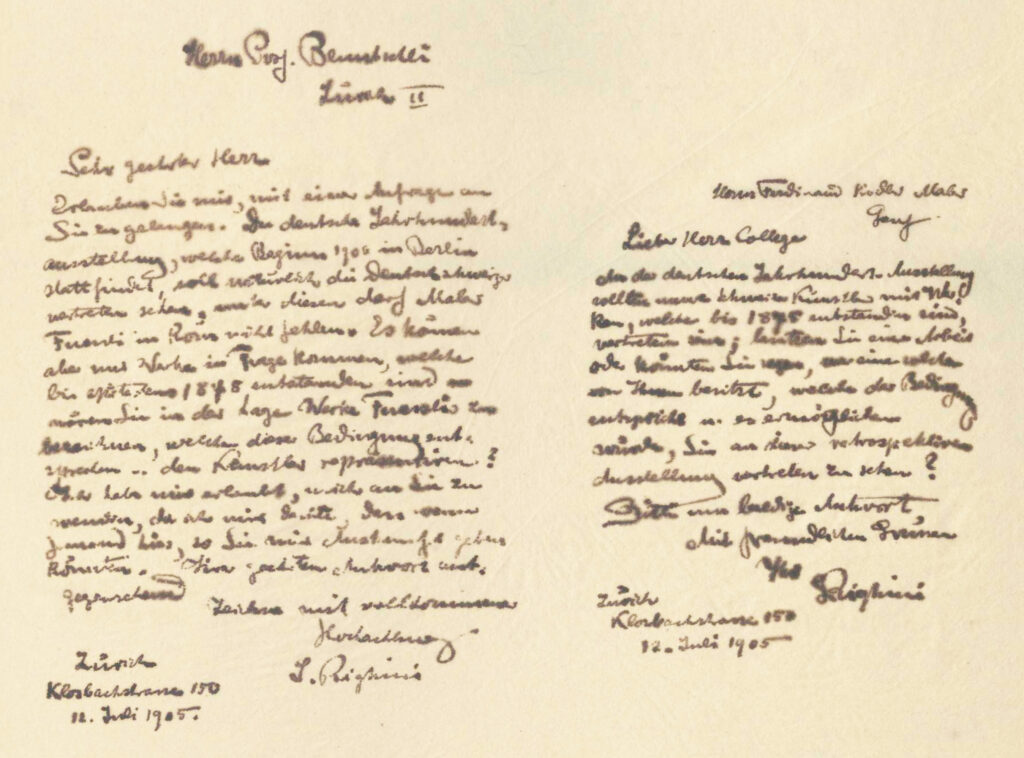 Herrn Prof. Bluntschli
Zürich II
Sehr geehrter Herr
Erlauben Sie mir, mit einer Anfrage an
Sie zu gelangen. Die deutsche Jahrhundert-
ausstellung, welche Beginn 1906 in Berlin
stattfindet, soll natürlich die deutsche Schweiz
vertreten sehen, unter diesen darf Maler
in Rom nicht fehlen. Es können
aber nur Werke in Frage kommen, welche
bis spätestens 1878 entstanden sind
wären Sie in der Lage Werke zu
bezeichnen, welche diese Bedingung ent-
sprechen u. den Künstler repräsentiren?
Ich habe mir erlaubt, mich an Sie zu
wenden, da ich mir dachte, dass wenn
Jemand hier, so Sie mir Auskunft geben
könnten. Ihrer geehrten Antwort ent-
gegensehend
Zeichne mit vollkommener
Hochachtung
S. Righini
Zürich
Klosbachstrasse 150
12. Juli 1905.
Herrn Ferdinand Hodler Maler
Genf
Lieber Herr College
An der deutschen Jahrhundert-Ausstellung
sollten unsere schweizer Künstler mit Wer-
ken, welche bis 1878 entstanden sind,
vertreten sein; besitzen Sie eine Arbeit
oder könnten Sie sagen, wer eine solche
von Ihnen besitzt, welche der Bedingung
entspricht u. es ermöglichen
würde, Sie an dieser retrospektiven
Ausstellung vertreten zu sehen?
Bitte um baldige Antwort
Mit freundlichen Grüssen
Righini
Zürich
Klosbachstrasse 150
12. Juli 1905